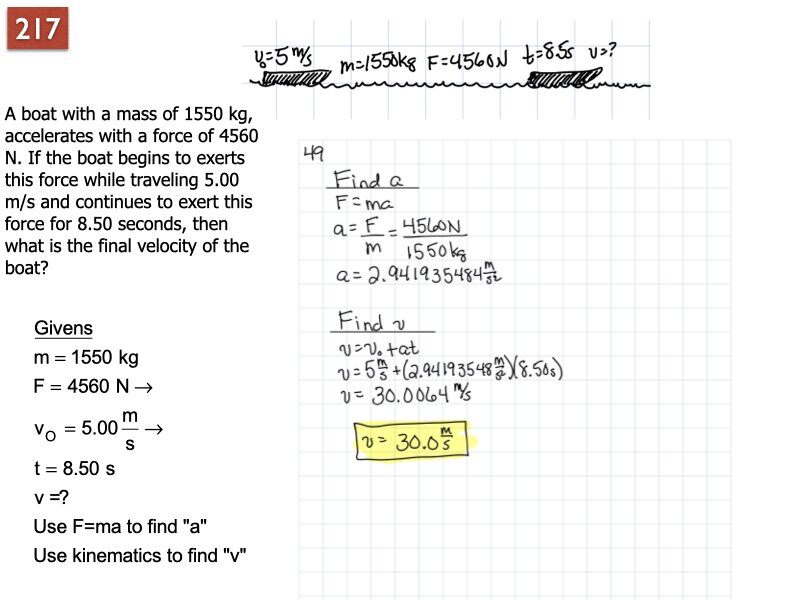 217
v₀=5 m/s m=1550kg F=4560N t=8.5s v=?
A boat with a mass of 1550 kg,
accelerates with a force of 4560
N. If the boat begins to exerts
this force while traveling 5.00
m/s and continues to exert this
force for 8.50 seconds, then
what is the final velocity of the
boat?
Givens
m = 1550 kg
F = 4560 N →
v_O = 5.00 m/s →
t = 8.50 s
v =?
Use F=ma to find "a"
Use kinematics to find "v"
49
Find a
F=ma
a= F/m = 4560N/1550kg
a= 2.941935484 m/s²
Find v
v=v₀+at
v= 5 m/s +(2.94193548 m/s²)(8.50s)
v= 30.0064 m/s
v= 30.0 m/s